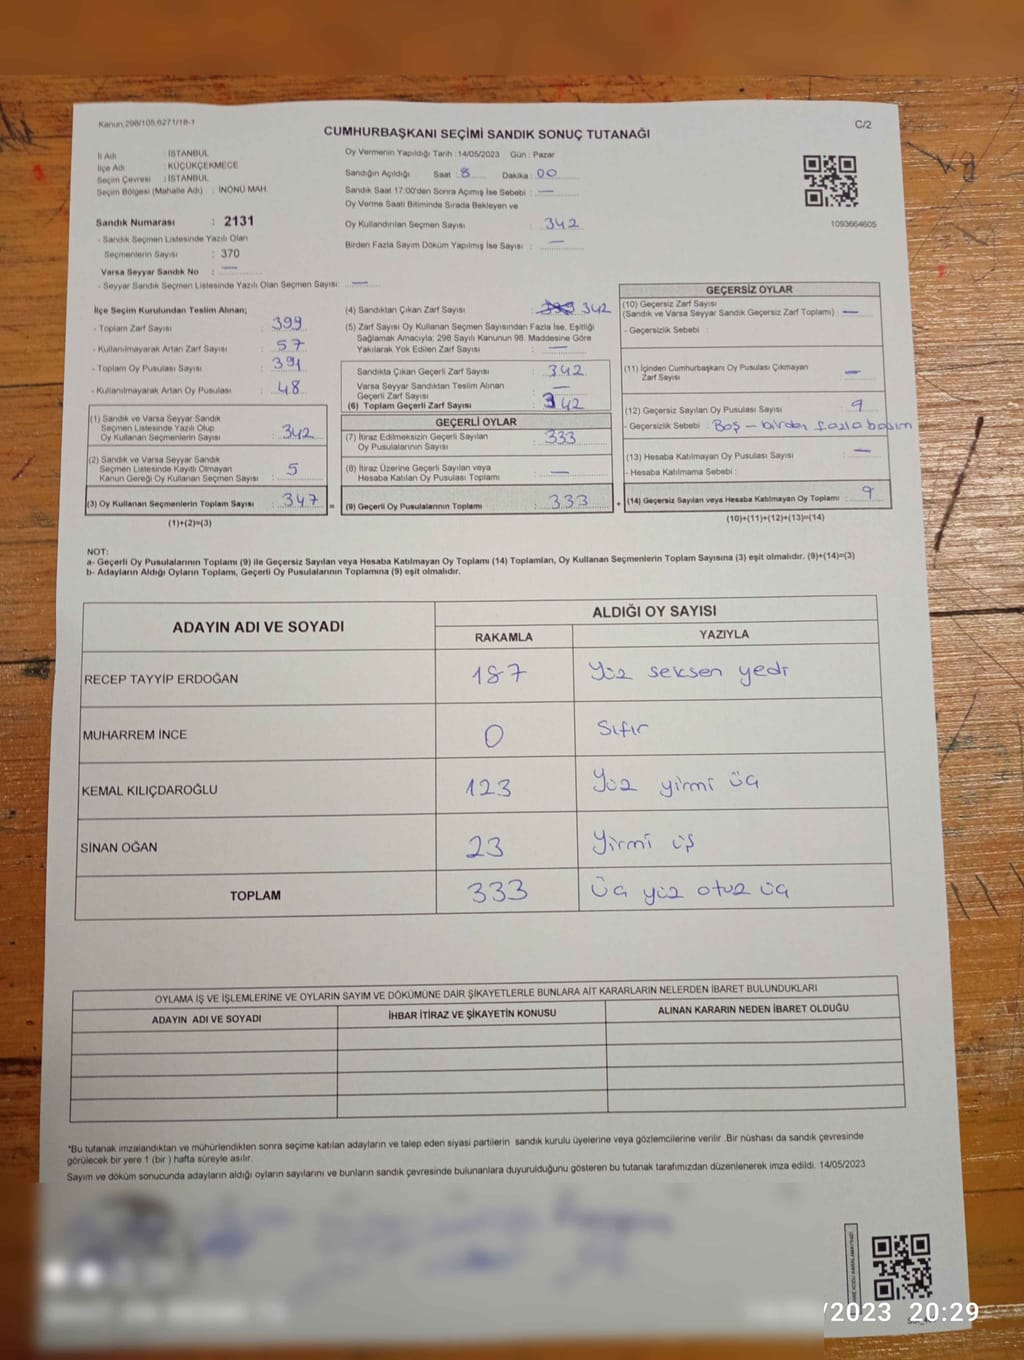 Kanun.298/105,6271/18-1
C/2
CUMHURBAŞKANI SEÇİMİ SANDIK SONUÇ TUTANAĞI
İl Adı : İSTANBUL
İlçe Adı : KÜÇÜKÇEKMECE
Seçim Çevresi : İSTANBUL
Seçim Bölgesi (Mahalle Adı) : İNÖNÜ MAH.
Sandık Numarası : 2131
- Sandık Seçmen Listesinde Yazılı Olan
Seçmenlerin Sayısı : 370
Varsa Seyyar Sandık No : —
- Seyyar Sandık Seçmen Listesinde Yazılı Olan Seçmen Sayısı: —
Oy Vermenin Yapıldığı Tarih : 14/05/2023 Gün : Pazar
Sandığın Açıldığı Saat : 8 Dakika : 00
Sandık Saat 17:00'den Sonra Açımış İse Sebebi : —
Oy Verme Saati Bitiminde Sırada Bekleyen ve
Oy Kullandırılan Seçmen Sayısı : 342
Birden Fazla Sayım Döküm Yapılmış İse Sayısı : —
1093664605
İlçe Seçim Kurulundan Teslim Alınan;
- Toplam Zarf Sayısı : 399
- Kullanılmayarak Artan Zarf Sayısı : 57
- Toplam Oy Pusulası Sayısı : 391
- Kullanılmayarak Artan Oy Pusulası : 48
(1) Sandık ve Varsa Seyyar Sandık
Seçmen Listesinde Yazılı Olup
Oy Kullanan Seçmenlerin Sayısı : 342
(2) Sandık ve Varsa Seyyar Sandık
Seçmen Listesinde Kayıtlı Olmayan
Kanun Gereği Oy Kullanan Seçmen Sayısı : 5
(3) Oy Kullanan Seçmenlerin Toplam Sayısı : 347 =
(1)+(2)=(3)
(4) Sandıktan Çıkan Zarf Sayısı : 342
(5) Zarf Sayısı Oy Kullanan Seçmen Sayısından Fazla İse, Eşitliği
Sağlamak Amacıyla; 298 Sayılı Kanunun 98. Maddesine Göre
Yakılarak Yok Edilen Zarf Sayısı : —
Sandıkta Çıkan Geçerli Zarf Sayısı : 342
Varsa Seyyar Sandıktan Teslim Alınan
Geçerli Zarf Sayısı : —
(6) Toplam Geçerli Zarf Sayısı : 342
GEÇERLİ OYLAR
(7) İtiraz Edilmeksizin Geçerli Sayılan
Oy Pusulalarının Sayısı : 333
(8) İtiraz Üzerine Geçerli Sayılan veya
Hesaba Katılan Oy Pusulası Toplamı : —
(9) Geçerli Oy Pusulalarının Toplamı : 333 +
GEÇERSİZ OYLAR
(10) Geçersiz Zarf Sayısı
(Sandık ve Varsa Seyyar Sandık Geçersiz Zarf Toplamı) : —
- Geçersizlik Sebebi :
(11) İçinden Cumhurbaşkanı Oy Pusulası Çıkmayan
Zarf Sayısı : —
(12) Geçersiz Sayılan Oy Pusulası Sayısı : 9
- Geçersizlik Sebebi : Boş – birden fazla basım
(13) Hesaba Katılmayan Oy Pusulası Sayısı : —
- Hesaba Katılmama Sebebi :
(14) Geçersiz Sayılan veya Hesaba Katılmayan Oy Toplamı : 9
(10)+(11)+(12)+(13)=(14)
NOT:
a- Geçerli Oy Pusulalarının Toplamı (9) ile Geçersiz Sayılan veya Hesaba Katılmayan Oy Toplamı (14) Toplamları, Oy Kullanan Seçmenlerin Toplam Sayısına (3) eşit olmalıdır. (9)+(14)=(3)
b- Adayların Aldığı Oyların Toplamı, Geçerli Oy Pusulalarının Toplamına (9) eşit olmalıdır.
ADAYIN ADI VE SOYADI
ALDIĞI OY SAYISI
RAKAMLA YAZIYLA
RECEP TAYYİP ERDOĞAN 187 Yüz seksen yedi
MUHARREM İNCE 0 Sıfır
KEMAL KILIÇDAROĞLU 123 Yüz yirmi üç
SİNAN OĞAN 23 Yirmi üç
TOPLAM 333 Üç yüz otuz üç
OYLAMA İŞ VE İŞLEMLERİNE VE OYLARIN SAYIM VE DÖKÜMÜNE DAİR ŞİKAYETLERLE BUNLARA AİT KARARLARIN NELERDEN İBARET BULUNDUKLARI
ADAYIN ADI VE SOYADI İHBAR İTİRAZ VE ŞİKAYETİN KONUSU ALINAN KARARIN NEDEN İBARET OLDUĞU
*Bu tutanak imzalandıktan ve mühürlendikten sonra seçime katılan adayların ve talep eden siyasi partilerin sandık kurulu üyelerine veya gözlemcilerine verilir .Bir nüshası da sandık çevresinde
görülecek bir yere 1 (bir ) hafta süreyle asılır.
Sayım ve döküm sonucunda adayların aldığı oyların sayılarını ve bunların sandık çevresinde bulunanlara duyurulduğunu gösteren bu tutanak tarafımızdan düzenlenerek imza edildi. 14/05/2023
/2023 20:29